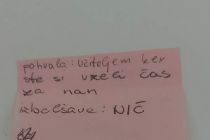 pohvala: učiteljem ker
ste si vzeli čas
za nan
izboljšave: NIČ